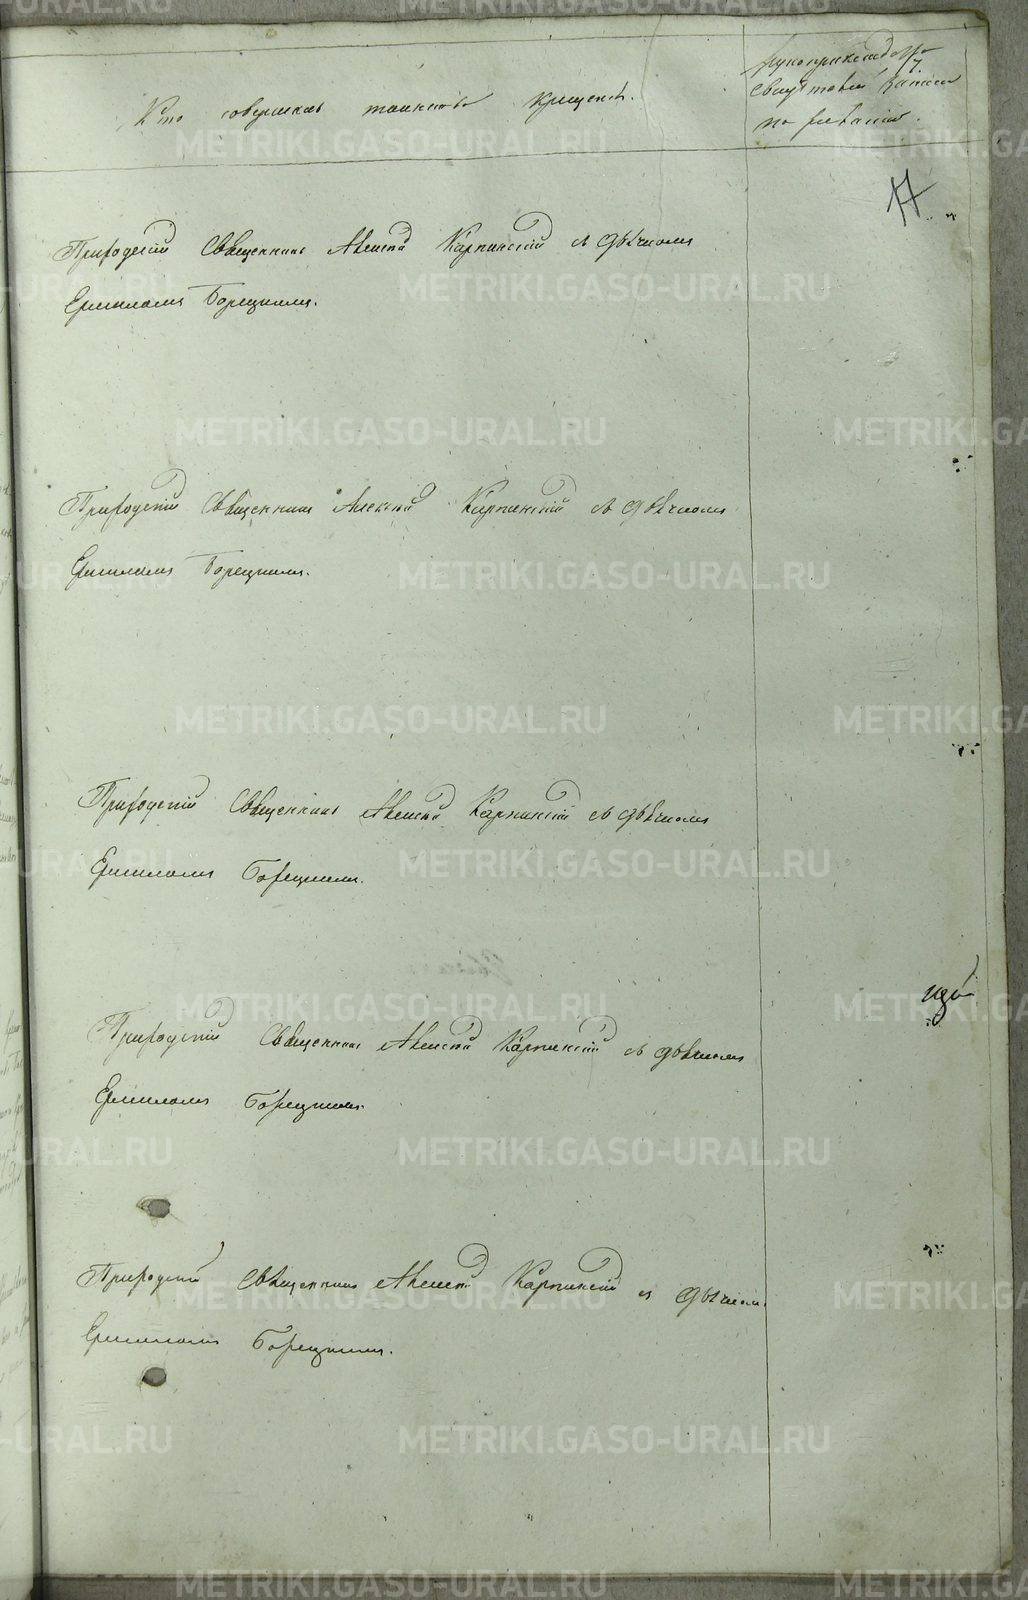 Кто совершалъ таинство крещенія.
Рукоприкладство
свидѣтелей записи
по желанію.
17
Приходскій Священникъ Алексѣй Карпинскій съ Дьячкомъ
Ермиломъ Борецкимъ.
Приходскій Священникъ Алексѣй Карпинскій съ Дьячкомъ
Ермиломъ Борецкимъ.
Приходскій Священникъ Алексѣй Карпинскій съ Дьячкомъ
Ермиломъ Борецкимъ.
Приходскій Священникъ Алексѣй Карпинскій съ Дьячкомъ
Ермиломъ Борецкимъ.
Приходскій Священникъ Алексѣй Карпинскій съ Дьячком.
Ермиломъ Борецкимъ.
METRIKI.GASO-URAL.RU